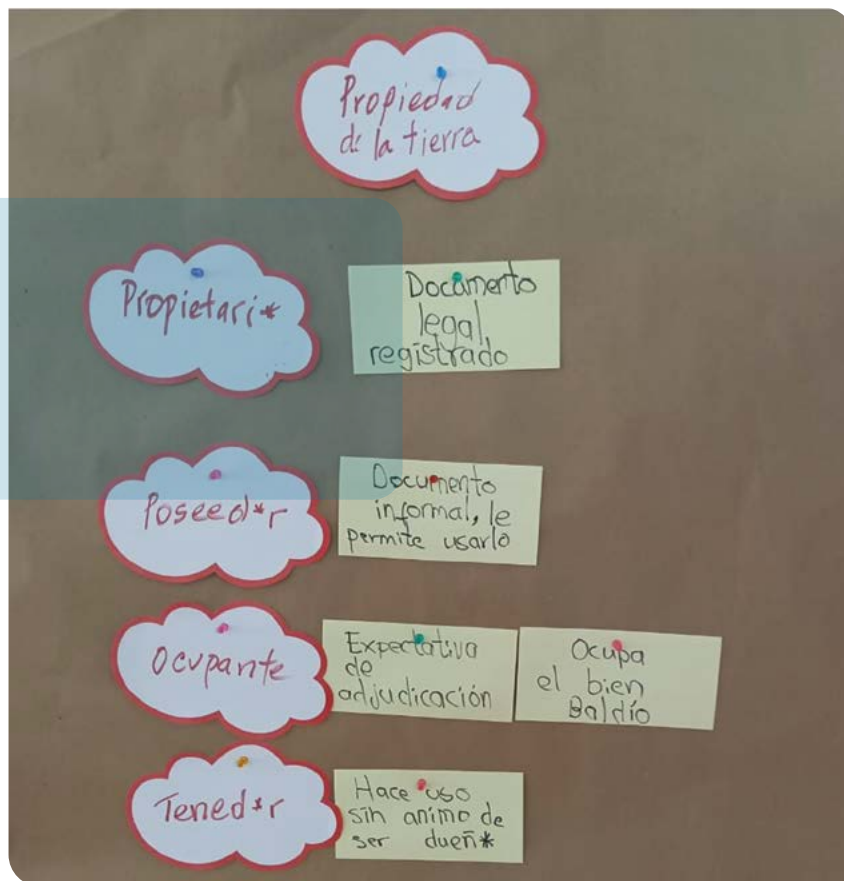 Propiedad
de la tierra
Propietari*
Documento
legal
registrado
Poseed*r
Documento
informal, le
permite usarlo
Ocupante
Expectativa
de
adjudicación
Ocupa
el bien
Baldío
Tened*r
Hace uso
sin animo de
ser dueñ*